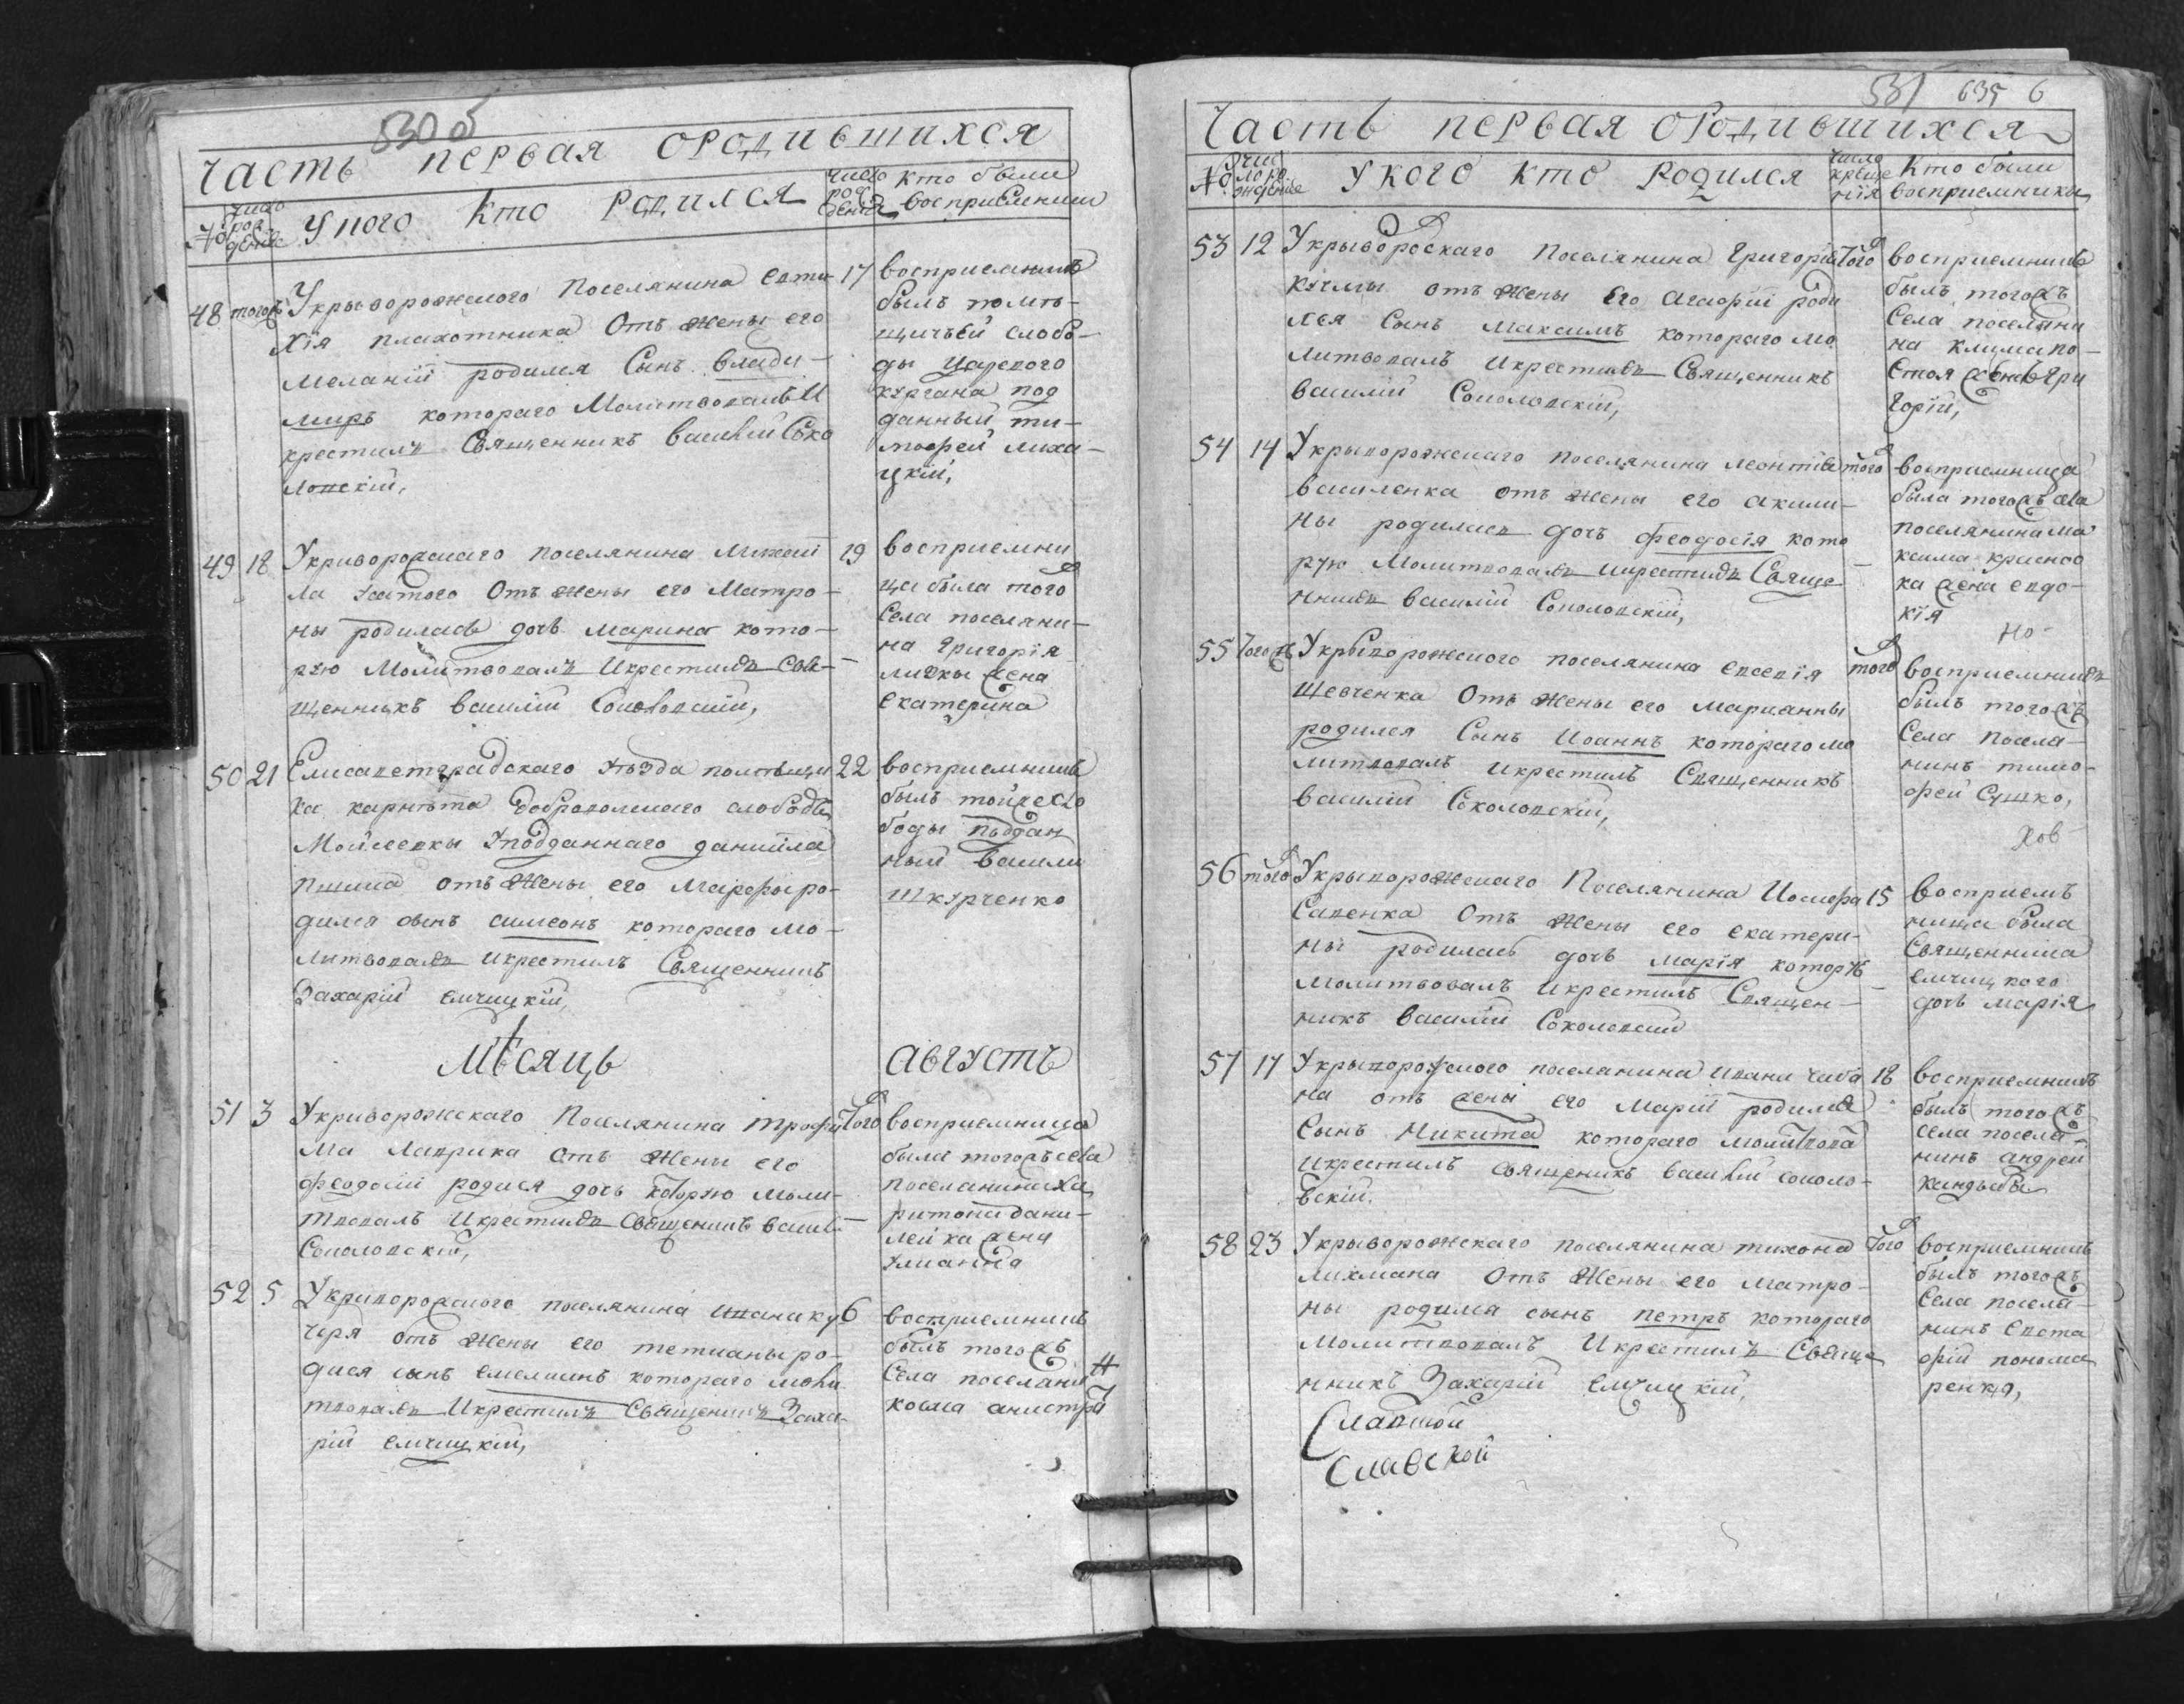 530 об
Часть первая ородившихся
№ число рождения У кого кто родился число рождения Кто были восприемники
48 тогожъ Укрыворожского поселянина Евти- 17
хія плахотника Отъ жены его
Меланіи родился Сынъ Влади-
миръ котораго Молитвовалъ И
крестилъ Священникъ василий Соко
ловскій,
восприемникъ
былъ помѣ-
щичьей слобо-
ды Царского
кургана под
данный ти-
мофей лиха-
цкій,
49 18 Укриворожскаго поселянина Михаи 19
ла Отъ жены его Матро-
ны родилась дочь марина кото-
рую Молитвовалъ Икрестилъ Свя-
щенникъ василій Соколовскій,
восприемни
ца была того
Села поселяни-
на григорія
жена
екатерина
50 21 Елисаветградскаго уѣзда помѣщи 22
ка карнѣта Доброволскаго слободы
Мойсеевки Уподданнаго даниила
отъ жены его Марфы ро-
дился сынъ симеонъ котораго Мо-
литвовалъ Икрестилъ Священникъ
Захарій емчицкій,
восприемникъ
былъ тойже сло
боды поддан
ный васили
шкурченко
Мѣсяцъ Августъ
51 3 Укриворожскаго Поселянина трофи того
ма Лаврика отъ жены его
феодосіи родися дочь которую моли-
твовалъ Икрестилъ Священникъ васил
Соколовскій,
восприемница
была тогожъ села
поселянина ха
ритона дани-
лейка жена
улианна
52 5 Укриворожского поселянина иванаку 6
черя отъ жены его тетианы ро-
дися сынъ емелианъ котораго моли
твовалъ Икрестилъ Священникъ Заха-
рій емчицкій,
восприемникъ
былъ тогожъ
Села поселяни
косма
531 635 6
Часть первая ородившихся
№ число рождение У кого кто родился число крещенія Кто были восприемники
53 12 Укрыворожскаго поселянина Григорія того
Кучмы отъ жены Его Агафіи роди
лся Сынъ Максимъ котораго мо
литвовалъ Икрестилъ Священникъ
василій Соколовскій,
восприемникъ
былъ тогожъ
Села поселяни
на климапо-
Стоя сынъ гри
горій,
54 14 Укрыворожскаго поселянина леонтія того
василенка отъ жены его акили-
ны родилась дочь феодосія кото
рую Молитвовалъ икрестилъ Свяще
нникъ василій Соколовскій,
восприемница
была тогожъ села
поселянина ма
ксима красно
ка жена евдо-
кія
но
55 тогожъ Укрыворожского поселянина евсевія того
Шевченка Отъ жены его марианны
родился Сынъ Иоаннъ котораго мо
литвовалъ Икрестилъ Священникъ
василій Соколовскій,
восприемникъ
былъ тогожъ
Села поселя-
нинъ тимо-
фей Сушко,
56 того Укрыворожскаго Поселянина Иосифа 15
Савенка Отъ жены его екатери-
ны родилась дочь марія которую
молитвовалъ икрестилъ Священ-
никъ василій Соколовский
восприем
ница была
Священника
емчицкого
дочь марія
57 17 Укрыворожского поселянина ивана чаба 18
на отъ жены его Маріи родился
Сынъ Никита котораго молитвова
икрестилъ священикъ василий соколо-
вскій.
восприемникъ
былъ тогожъ
села поселя-
нинъ андрей
кандыба
58 23 Укрыворожскаго поселянина тихона того
лихмана Отъ жены его матро-
ны родился сынъ петръ котораго
Молитвовалъ Икрестилъ Свяще
нникъ Захарій емчицкій,
восприемникъ
былъ тогожъ
Села поселя-
нинъ Евста
фій понома
ренко,
Славской